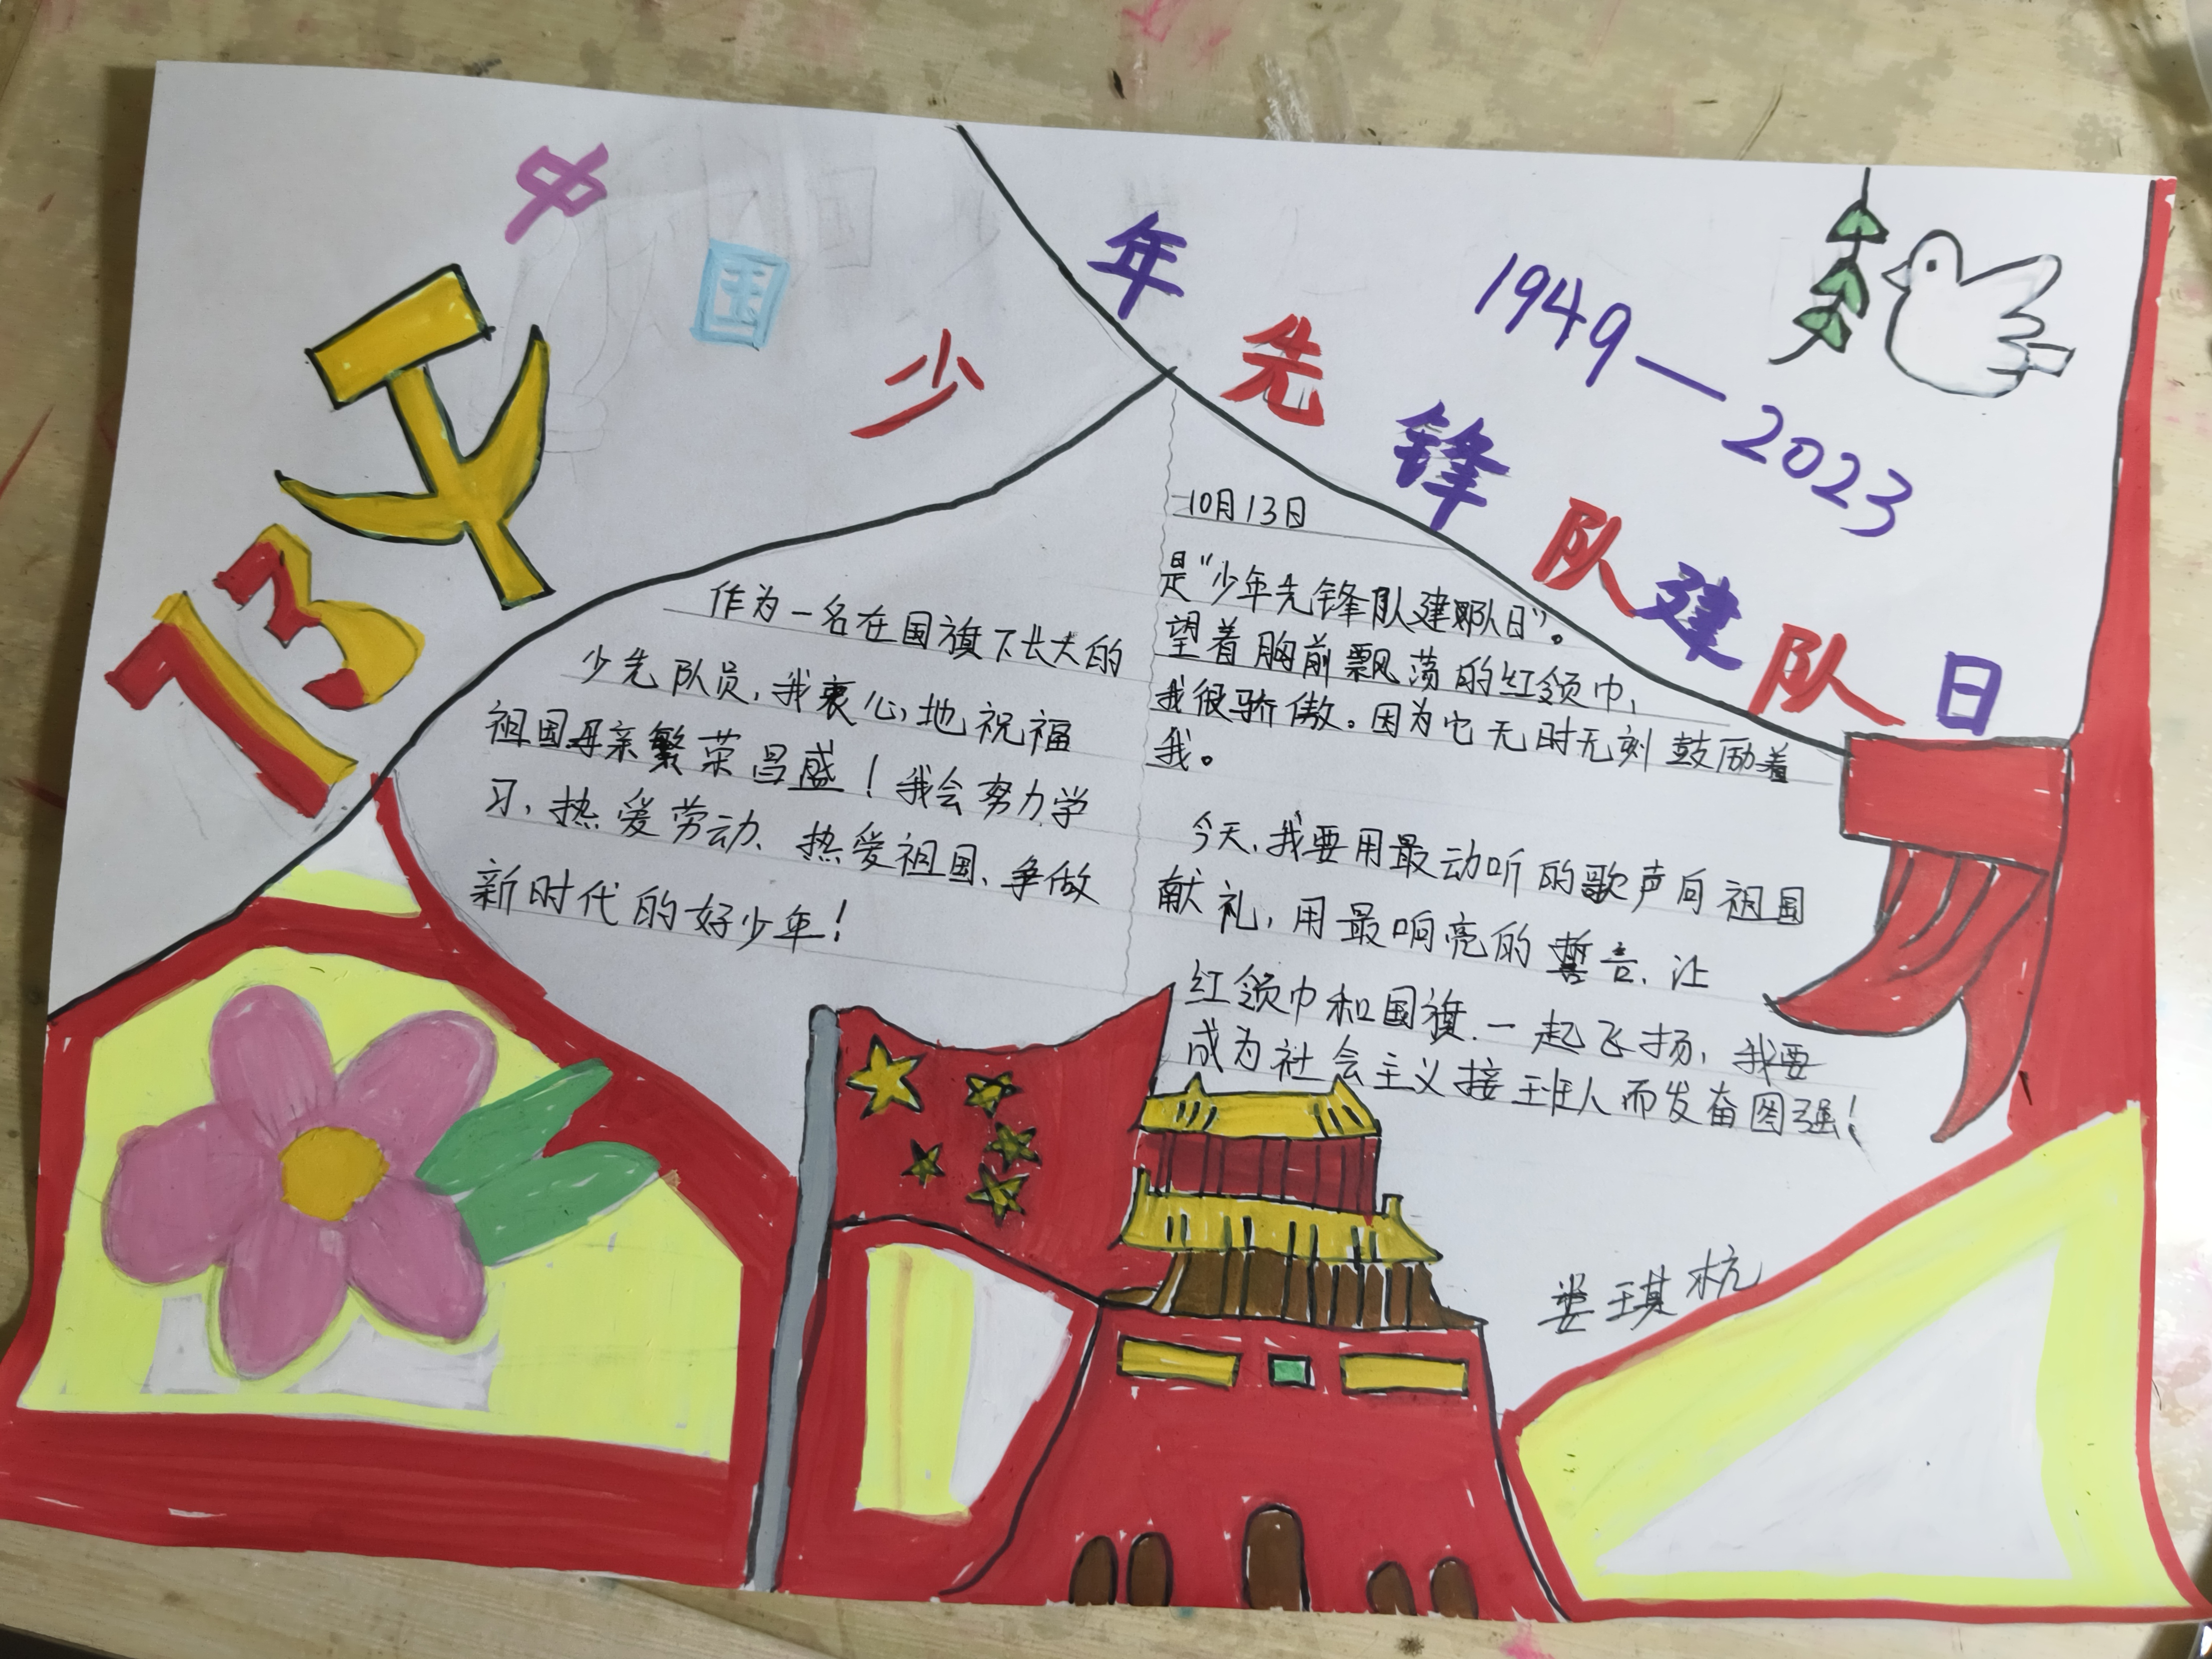 中国少年先锋队建队日
1949—2023
13
作为一名在国旗下长大的
少先队员，我衷心地祝福
祖国母亲繁荣昌盛！我会努力学
习、热爱劳动、热爱祖国、争做
新时代的好少年！
10月13日
是“少年先锋队建队日”。
望着胸前飘荡的红领巾，
我很骄傲。因为它无时无刻鼓励着
我。
今天，我要用最动听的歌声向祖国
献礼，用最响亮的誓言，让
红领巾和国旗一起飞扬，我要
成为社会主义接班人而发奋图强！
娄琪杭